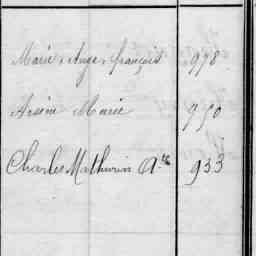 Marie, Ange, françois 978
Arsène Marie 950
Charles Mathurin A.te 933